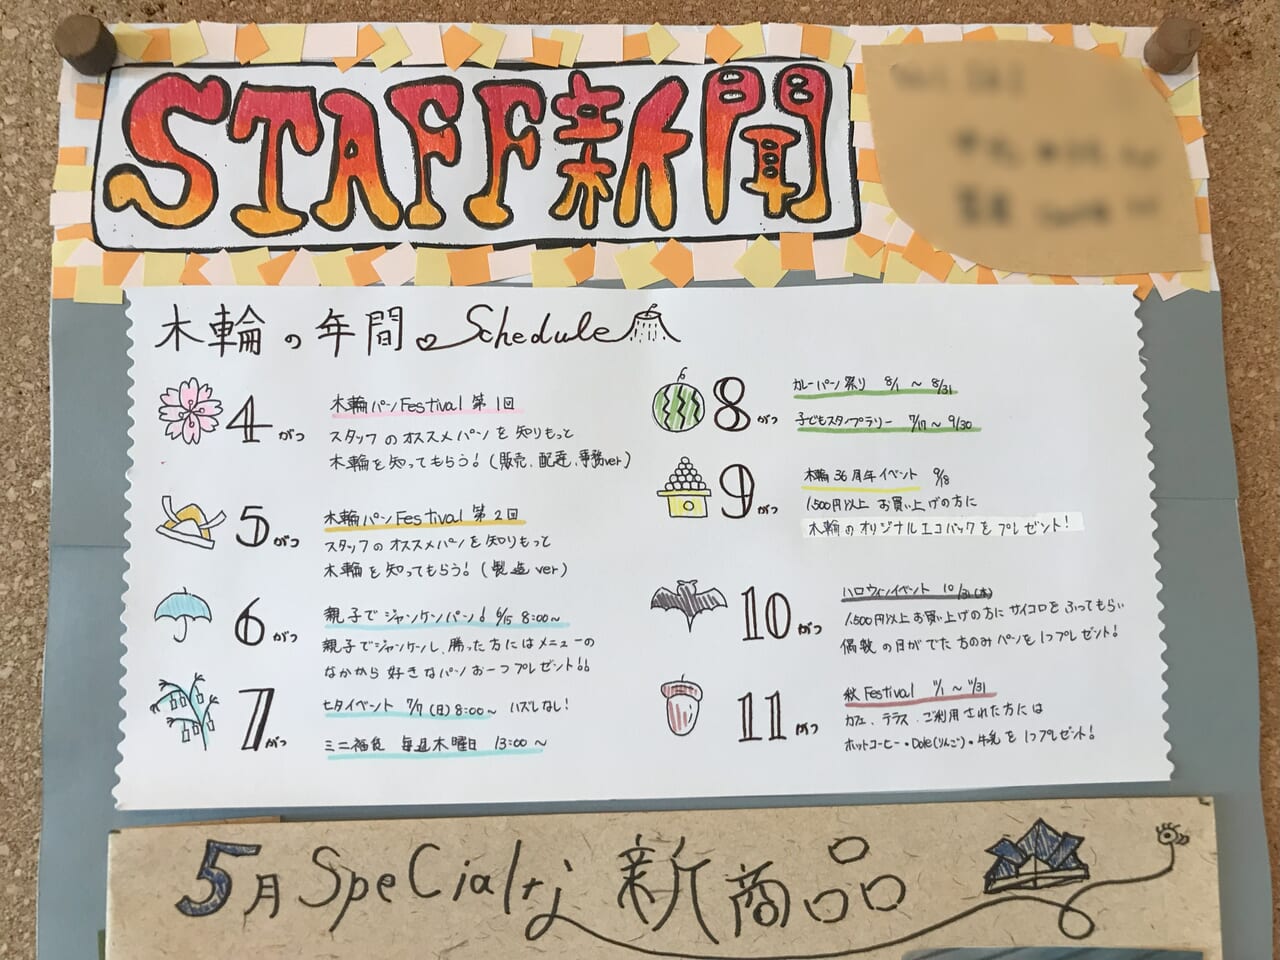 STAFF新聞
木輪の年間Schedule
4がつ
木輪パンFestival 第1回
スタッフのオススメパンを知りもって
木輪を知ってもらう！（販売、配達、事務ver）
5がつ
木輪パンFestival 第2回
スタッフのオススメパンを知りもって
木輪を知ってもらう！（製造ver）
6がつ
親子でジャンケンパン！ 6/15 8:00～
親子でジャンケンし、勝った方にはメニューの
なかから好きなパンお一つプレゼント!!
7がつ
七夕イベント 7/7(日) 8:00～ ハズレなし！
ミニ福食 毎週木曜日 13:00～
8がつ
カレーパン祭り 8/1 ～ 8/31
子どもスタンプラリー 7/17～9/30
9がつ
木輪36周年イベント 9/18
1,500円以上お買い上げの方に
木輪のオリジナルエコバックをプレゼント！
10がつ
ハロウィンイベント 10/31(木)
1,500円以上お買い上げの方にサイコロをふってもらい
偶数の目がでた方のみペンを1つプレゼント！
11がつ
秋Festival 11/1 ～ 11/31
カフェ、テラス、ご利用された方には
ホットコーヒー・Dole(りんご)・牛乳を1つプレゼント！
5月Specialな新商品